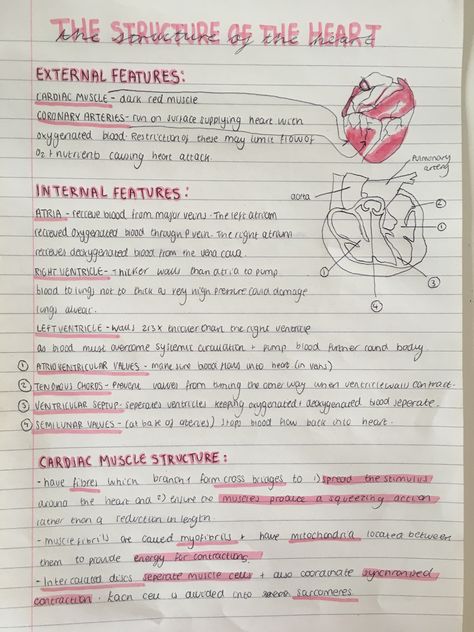 THE STRUCTURE OF THE HEART
the structure of the heart
EXTERNAL FEATURES:
CARDIAC MUSCLE - dark red muscle
CORONARY ARTERIES - run on surface supplying heart with
oxygenated blood. Restriction of these may limit flow of
O2 + nutrients causing heart attack.
Pulmonary
artery
aorta
INTERNAL FEATURES:
ATRIA - recieve blood from major veins. The left atrium
recieved oxygenated blood through P vein. The right atrium
recieves deoxygenated blood from the vena cava.
RIGHT VENTRICLE - Thicker walls than atria to pump
blood to lungs not to thick as very high pressure could damage
lungs alveoli.
LEFT VENTRICLE - walls 2/3 x thicker than the right ventricle
as blood must overcome systemic circulation + pump blood further round body.
① ATRIOVENTRICULAR VALVES - make sure blood flows into heart (in vans)
② TENDONOUS CHORDS - Prevent valves from turning the other way when ventricle walls contract.
③ VENTRICULAR SEPTUP - seperates ventricles keeping oxygenated + deoxygenated blood seperate.
④ SEMILUNAR VALVES - (at base of arteries) stops blood flow back into heart.
② ① ① ③ ④
CARDIAC MUSCLE STRUCTURE:
- have fibres which branch + form cross bridges to 1) spread the stimulus
around the heart and 2) ensure the muscles produce a squeezing action
rather than a reduction in length.
- muscle fibrils are called myofibrils + have mitochondria located between
them to provide energy for contractions.
- Intercalated discs seperate muscle cells + also coordinate synchronized
contraction. Each cell is divided into sarcomeres